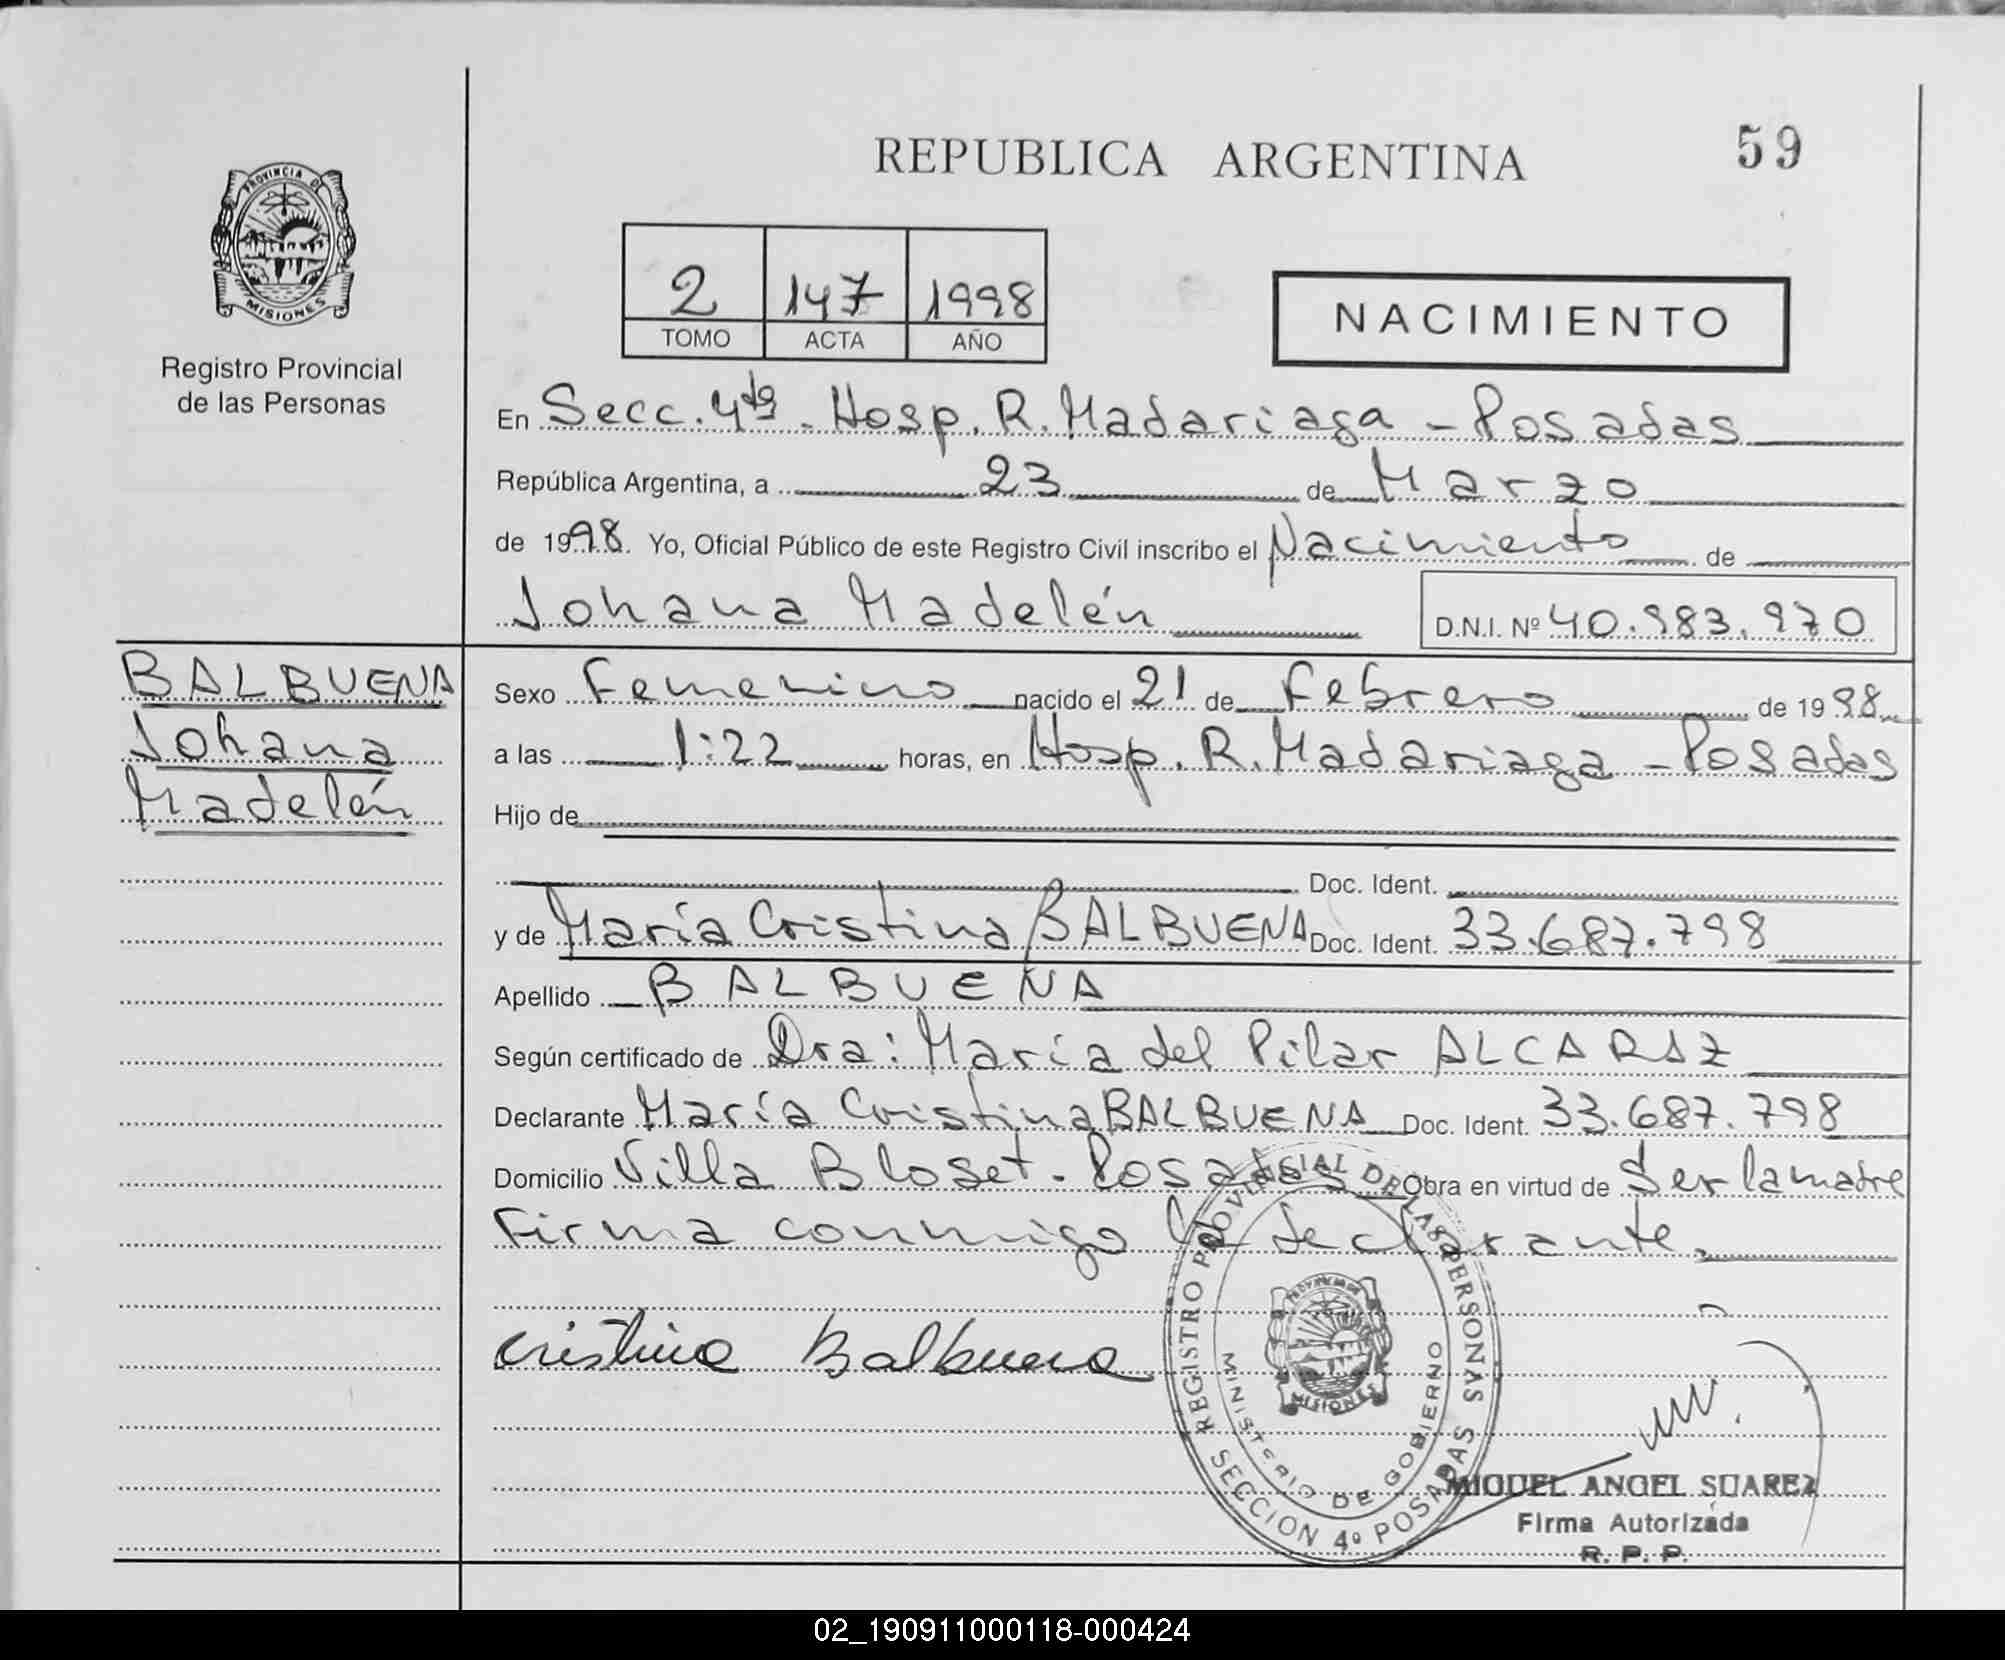 REPUBLICA ARGENTINA
59
PROVINCIA DE
MISIONES
Registro Provincial
de las Personas
2 147 1998
TOMO ACTA AÑO
NACIMIENTO
En Secc. 4ta. Hosp. R. Madariaga - Posadas
República Argentina, a 23 de Marzo
de 1998. Yo, Oficial Público de este Registro Civil inscribo el Nacimiento de
Johana Madelén D.N.I. Nº 40.983.970
BALBUENA
Johana
Madelén
Sexo Femenino nacido el 21 de Febrero de 1998
a las 1:22 horas, en Hosp. R. Madariaga - Posadas
Hijo de
Doc. Ident.
y de María Cristina BALBUENA Doc. Ident. 33.687.798
Apellido BALBUENA
Según certificado de Dra: María del Pilar ALCARAZ
Declarante María Cristina BALBUENA Doc. Ident. 33.687.798
Domicilio Villa Bloset - Posadas Obra en virtud de Ser la madre
Firma conmigo la declarante.
Cristina Balbuena
REGISTRO PROVINCIAL DE LAS PERSONAS
MINISTERIO DE GOBIERNO
MISIONES
SECCION 4º POSADAS
MIGUEL ANGEL SUAREZ
Firma Autorizada
R. P. P.
02_190911000118-000424